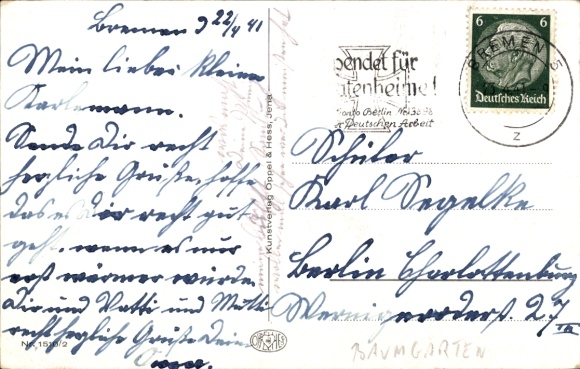 Bremen d 22/4 41
Mein lieber kleiner
Karlemann.
Sende Dir recht
herzliche Grüße, hoffe
das es dir recht gut
geht. wenn es nur
erst wärmer würde.
Dir und Vatti und Mutti
recht herzliche Grüße Deine
Oma.
NK 1518/2
Kunstverlag Oppel & Hess, Jena
pendet für
tenheime!
Konto Berlin
Deutschen Arbeit
BREMEN 5
z
6 6
Deutsches Reich
Schüler
Karl Segelke
Berlin Charlottenburg
Wernigeroderst. 27
BAUMGARTEN